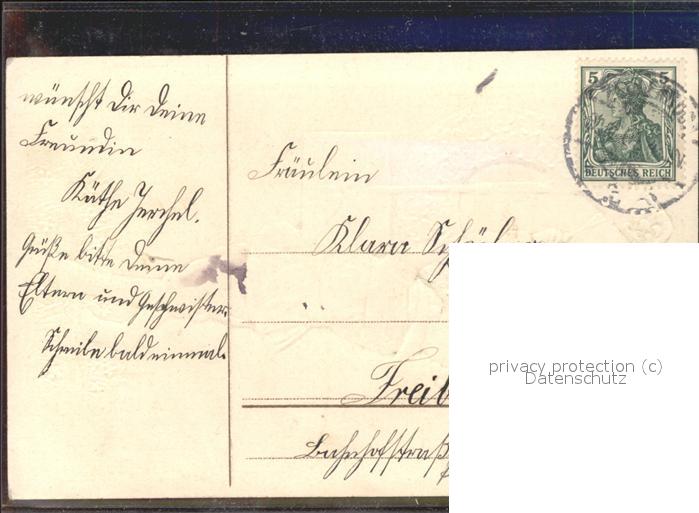 wünscht Dir Deine
Freundin
Käthe Jerchel.
Grüße bitte Deine
Eltern und Geschwister.
Schreibe bald einmal.
5 5
DEUTSCHES REICH
Fräulein
Klara
Freib
Bahnhofstraß
privacy protection (c)
Datenschutz